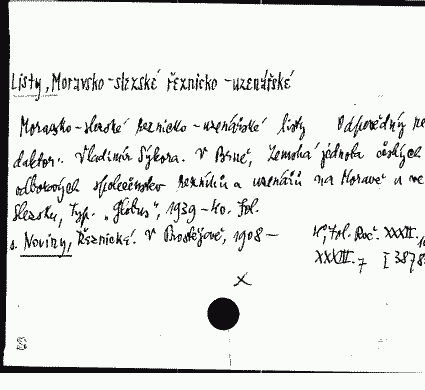 Listy, Moravsko-slezské řeznicko-uzenářské
Moravsko-slezské řeznicko-uzenářské listy Odpovědný re
daktor: Vladimír Sýkora. V Brně, Zemská jednota českých
odborových společenstev řezníků a uzenářů na Moravě a ve
Slezsku, typ. „Globus", 1939-40. fol.
s. Noviny, Řeznické. V Prostějově, 1908 — 4°, fol. Roč. XXXII.
XXXIII. 7 I 3878
X